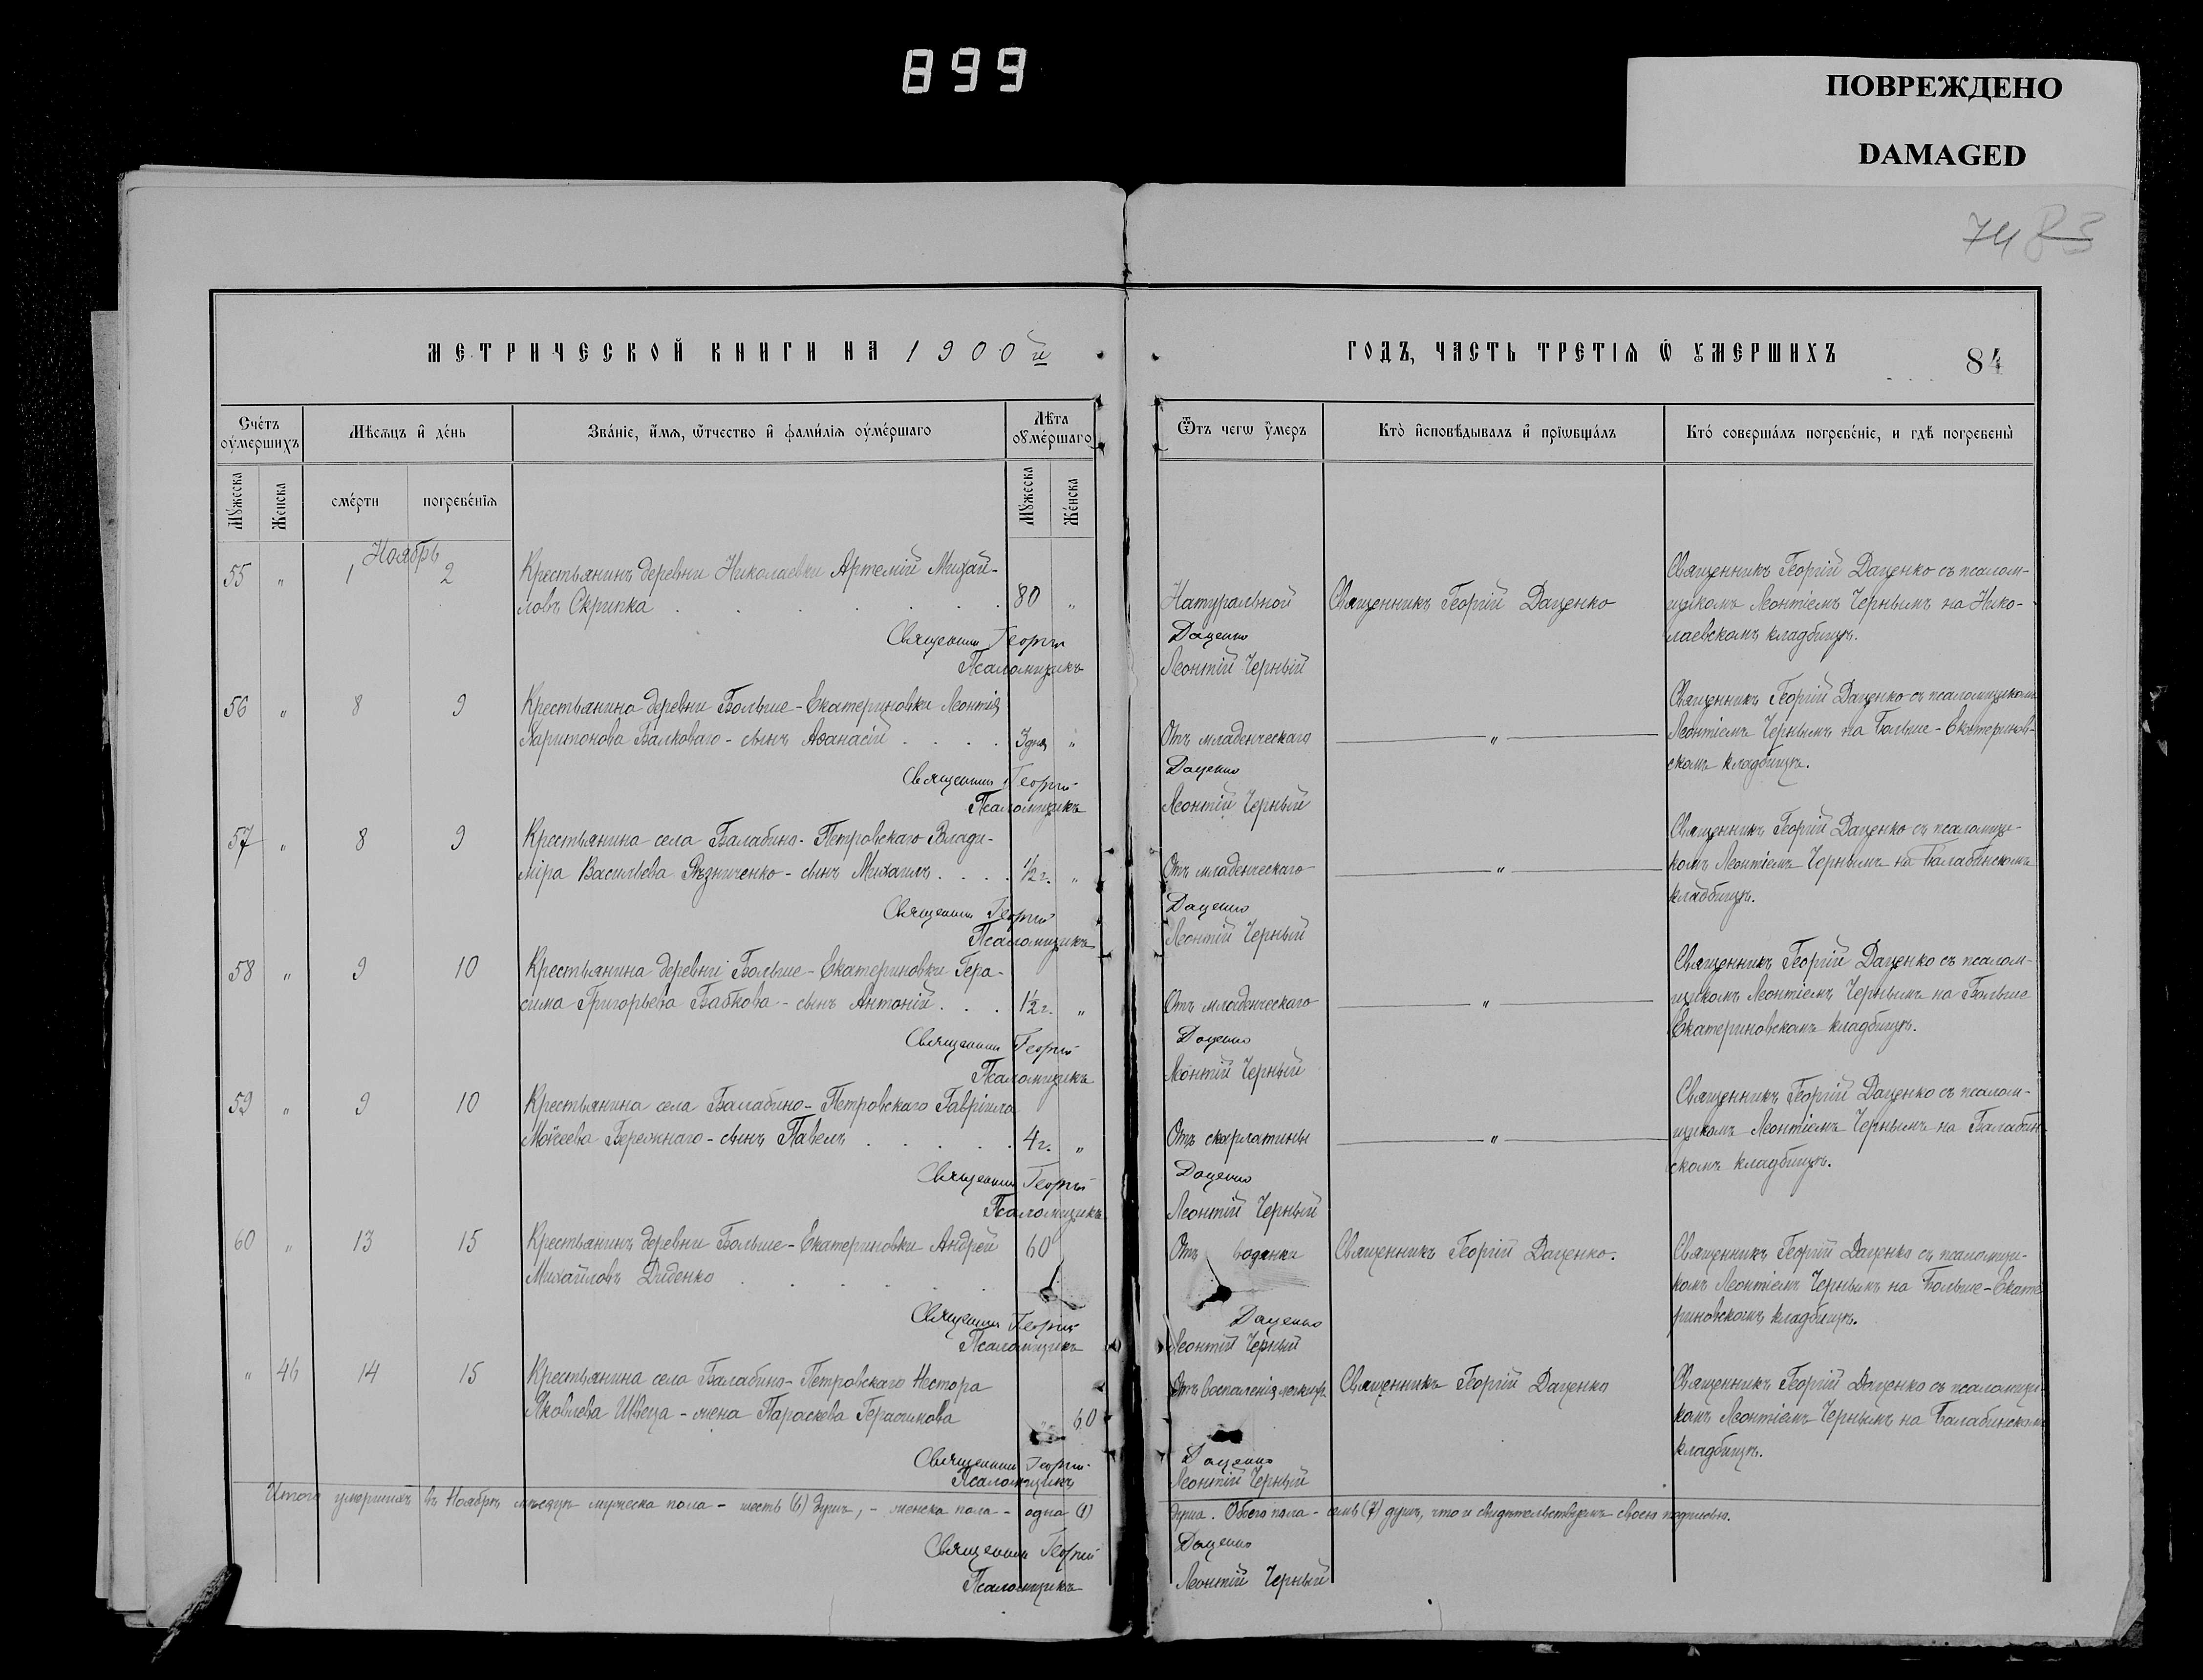 899
ПОВРЕЖДЕНО
DAMAGED
74 83
МЕТРИЧЕСКОЙ КНИГИ НА 1900й
ГОДЪ, ЧАСТЬ ТРЕТІЯ Ѿ ОУМЕРШИХЪ
84
Счетъ оумершихъ
Мѣсяцъ и день
Званіе, имя, отчество и фамилія оумершаго
Лѣта оумершаго
Ѿъ чегѡ оумеръ
Кто исповѣдывалъ и пріобщалъ
Кто совершалъ погребеніе, и гдѣ погребены
Мужеска
Женска
смерти
погребенія
Мужеска
Женска
Ноябрь
55 " 1 2 Крестьянинъ деревни Николаевки Артемій Михай-
ловъ Скрипка 80 "
Натуральной
Священникъ Георгій Даценко
Священникъ Георгій Даценко съ псалом-
щикомъ Леонтіемъ Чернымъ на Нико-
лаевскомъ кладбищѣ.
Священникъ Георгій Даценко
Псаломщикъ Леонтій Черный
56 " 8 9 Крестьянина деревни Больше-Екатериновки Леонтія
Харитонова Балковаго - сынъ Аѳанасій 3 дня "
Отъ младенческаго
"
Священникъ Георгій Даценко съ псаломщикомъ
Леонтіемъ Чернымъ на Больше-Екатеринов-
скомъ кладбищѣ.
Священникъ Георгій Даценко
Псаломщикъ Леонтій Черный
57 " 8 9 Крестьянина села Балабино-Петровскаго Влади-
міра Васильева Рѣзниченко - сынъ Михаилъ ½ г. "
Отъ младенческаго
"
Священникъ Георгій Даценко съ псаломщи-
комъ Леонтіемъ Чернымъ на Балабинскомъ
кладбищѣ.
Священникъ Георгій Даценко
Псаломщикъ Леонтій Черный
58 " 9 10 Крестьянина деревни Больше-Екатериновки Гера-
сима Григорьева Бабкова - сынъ Антоній 1½ г. "
Отъ младенческаго
"
Священникъ Георгій Даценко съ псалом-
щикомъ Леонтіемъ Чернымъ на Больше
Екатериновскомъ кладбищѣ.
Священникъ Георгій Даценко
Псаломщикъ Леонтій Черный
59 " 9 10 Крестьянина села Балабино-Петровскаго Гавріила
Моисеева Бережнаго - сынъ Павелъ 4 г. "
Отъ скарлатины
"
Священникъ Георгій Даценко съ псалом-
щикомъ Леонтіемъ Чернымъ на Балабин-
скомъ кладбищѣ.
Священникъ Георгій Даценко
Псаломщикъ Леонтій Черный
60 " 13 15 Крестьянинъ деревни Больше-Екатериновки Андрей 60
Михайловъ Диденко
Отъ водянки
Священникъ Георгій Даценко.
Священникъ Георгій Даценко съ псаломщи-
комъ Леонтіемъ Чернымъ на Больше-Екате
риновскомъ кладбищѣ.
Священникъ Георгій Даценко
Псаломщикъ Леонтій Черный
" 46 14 15 Крестьянина села Балабино-Петровскаго Нестора
Яковлева Швеца - жена Параскева Герасимова " 60
Отъ воспаленія легкихъ
Священникъ Георгій Даценко
Священникъ Георгій Даценко съ псаломщи-
комъ Леонтіемъ Чернымъ на Балабинскомъ
кладбищѣ.
Священникъ Георгій Даценко
Псаломщикъ Леонтій Черный
Итого умершихъ въ Ноябрѣ мѣсяцѣ мужеска пола - шесть (6) душъ, - женска пола - одна (1) душа. Обоего пола - семь (7) душъ, что и свидѣтельствуемъ своею подписью.
Священникъ Георгій Даценко
Псаломщикъ Леонтій Черный